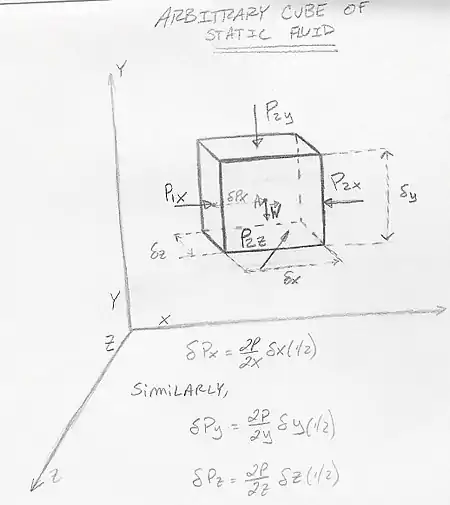 ARBITRARY CUBE OF
STATIC FLUID
Y
P2y
P1x
δPx
A
W
P2x
δy
δz
P2z
δx
Y
Z
X
δPx = ∂P/∂x δx(1/2)
SIMILARLY,
δPy = ∂P/∂y δy(1/2)
Z
δPz = ∂P/∂z δz(1/2)